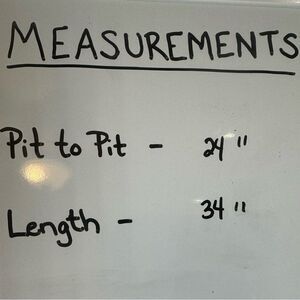 MEASUREMENTS
Pit to Pit - 24 "
Length - 34 "